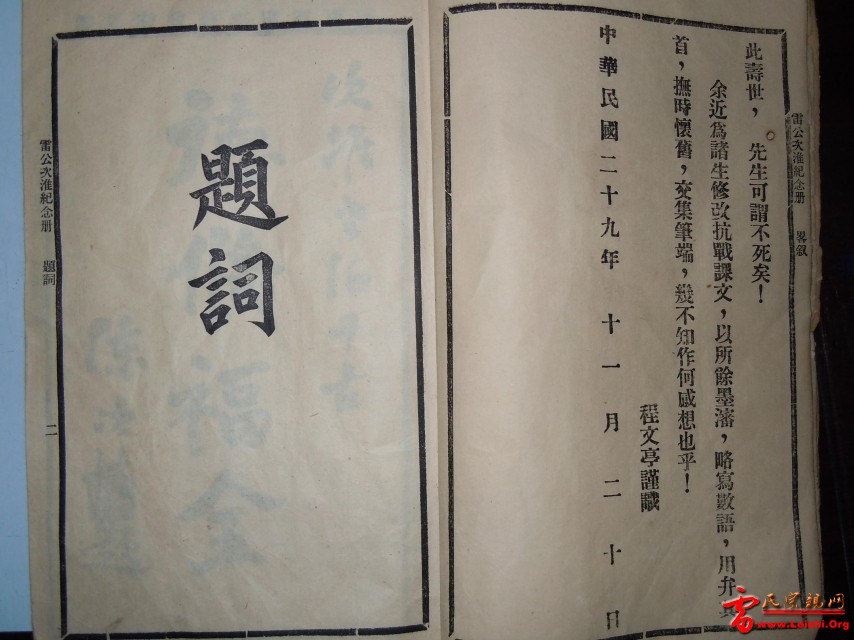 雷公次淮紀念册 畧叙
此壽世，先生可謂不死矣！
余近爲諸生修改抗戰課文，以所餘墨瀋，略寫數語，用弁其
首，撫時懷舊，交集筆端，幾不知作何感想也乎！
程文亭謹識
中華民國二十九年十一月二十日
題詞
雷公次淮紀念册 題詞 二
雷氏宗親网
www.Leishi.Org